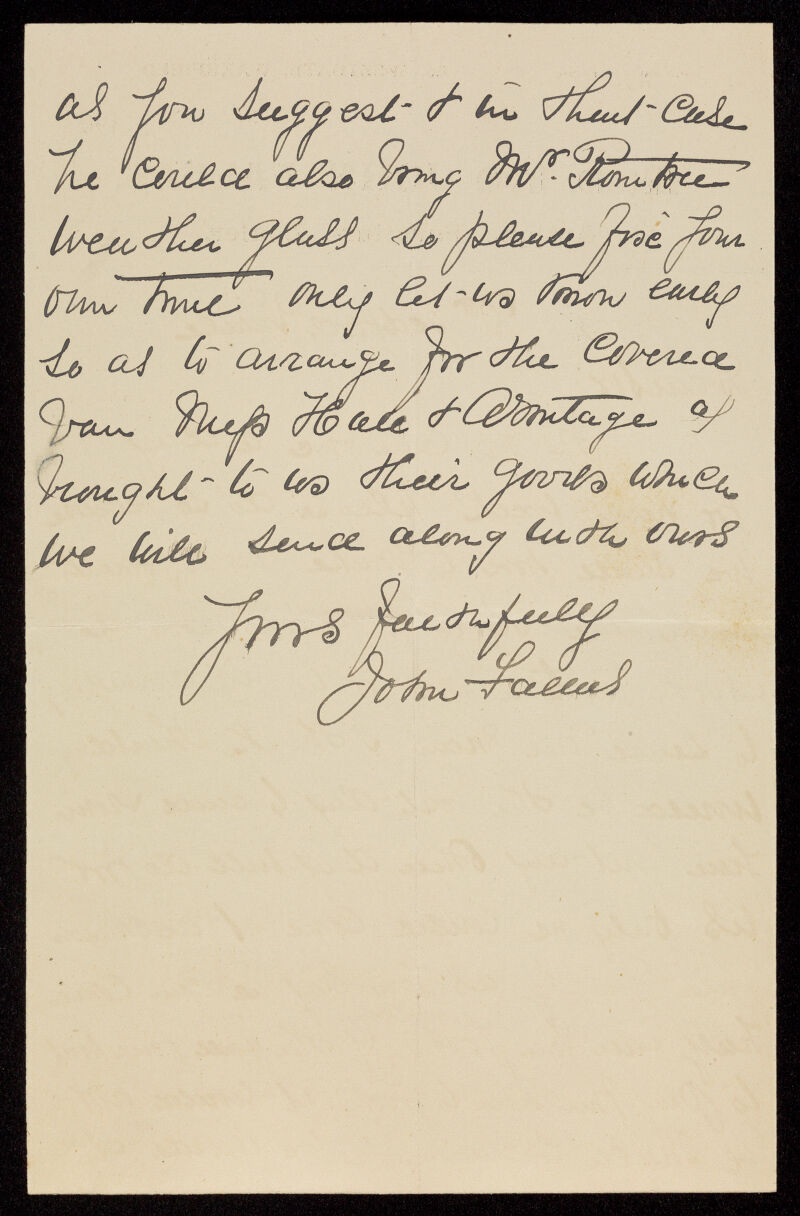 as you suggest & in that case
he could also bring Mr. Rowntree
weather glass so please fix your
own time only let us know early
so as to arrange for the covered
van Mess Hall & Armitage as
brought to us their goods which
we will send along with ours
Yours faithfully
John